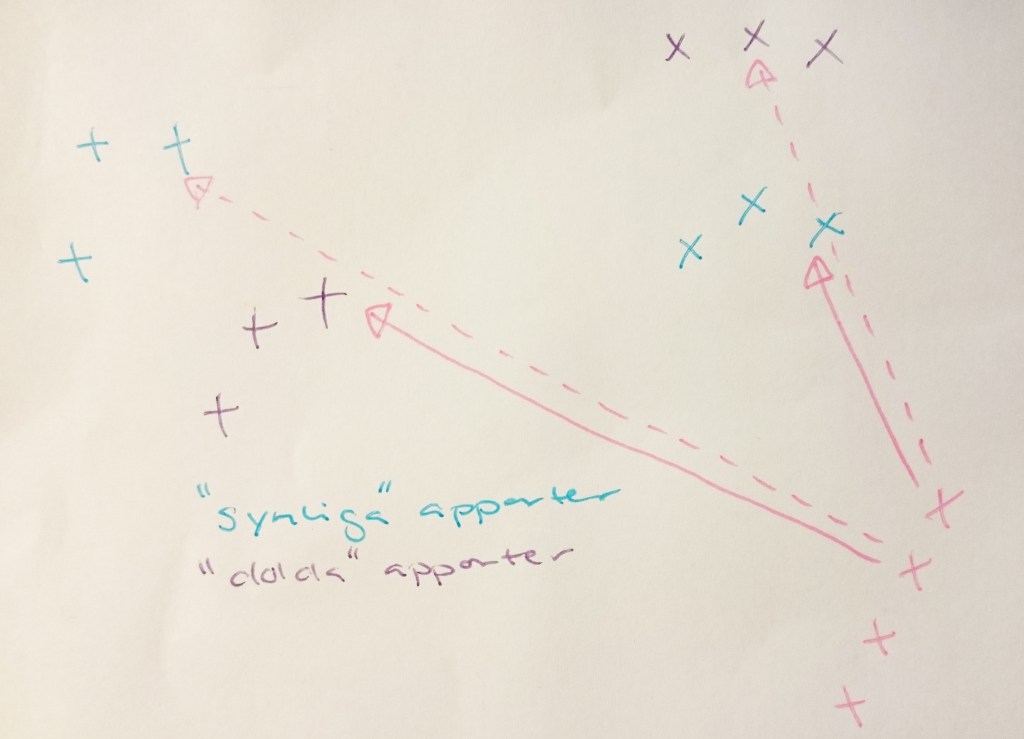 "synliga" apporter
"dolda" apporter